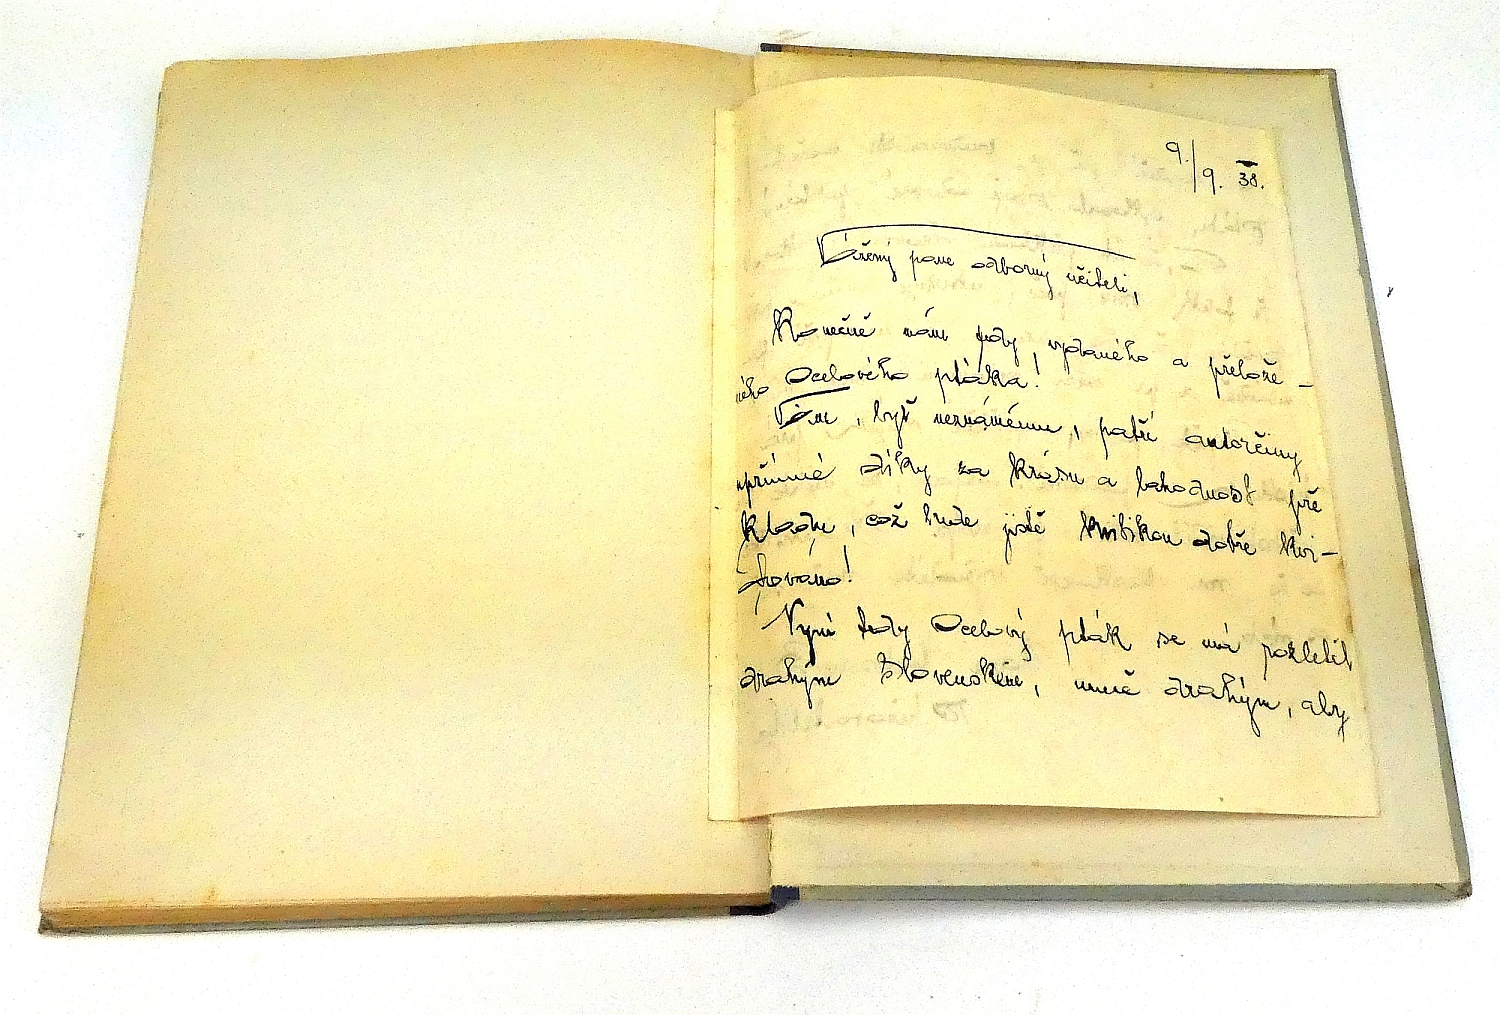 9./9. 38.
Vážený pane odborný učiteli,
Konečně mám tedy vydaného a přelože-
ného Ocelového ptáka!
Vám, byť neznámému, patří autorčiny
upřímné díky za krásu a lahodnost pře
kladu, což bude jistě kritikou dobře kvi-
továno!
Nyní tedy Ocelový pták se má rozletět
drahým Slovenskem, mně drahým, aby